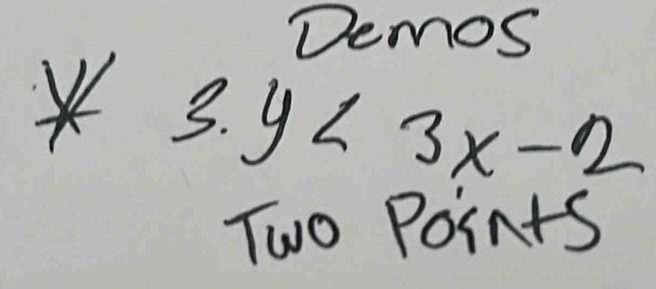 Demos
* 3. y < 3x - 2
Two Points